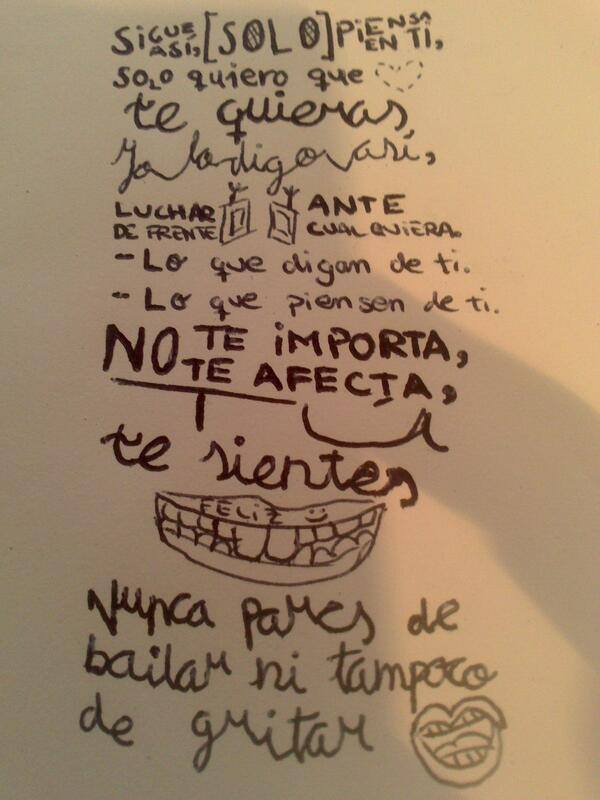 SIGUE ASÍ, [SOLO] PIENSA EN TI,
solo quiero que
te quieras,
Yo lo digo así,
LUCHAR DE FRENTE ANTE CUALQUIERA.
- Lo que digan de ti.
- Lo que piensen de ti.
NO TE IMPORTA,
TE AFECTA,
te sientes
FELIZ
Nunca pares de
bailar ni tampoco
de gritar